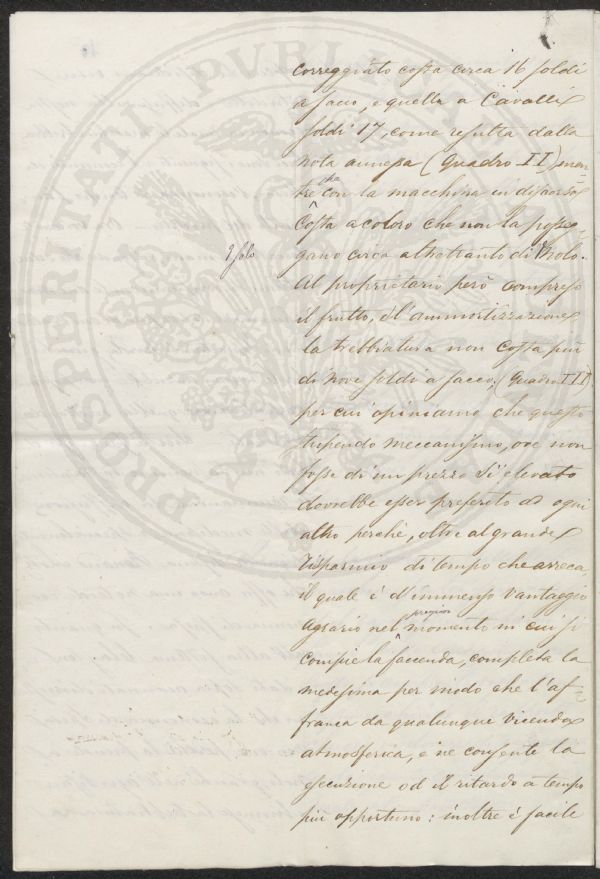 correggiato costa circa 16 soldi
a sacco, e quella a Cavalli
soldi 17, come resulta dalla
nota annessa (Quadro II) men=
tre con la macchina in discorso
Costa a coloro che non la posse=
gano circa altrettanto di
il solo
Al proprietario però compreso
il frutto, e l'ammortizzazione
la trebbiatura non costa più
di nove soldi a sacco, (Quadro III)
per cui opiniamo che questo
stupendo meccanismo, ove non
fosse di un prezzo sì elevato
dovrebbe esser preferito ad ogni
altro perché, oltre al grande
risparmio di tempo che arreca
il quale è d'immenso vantaggio
agrario nel momento in cui si
compie la faccenda, completa la
medesima per modo che l'af=
franca da qualunque vicenda
atmosferica, e ne consente la
esecuzione od il ritardo a tempo
più opportuno: inoltre è facile
PROSPERITATI PUBLICAE